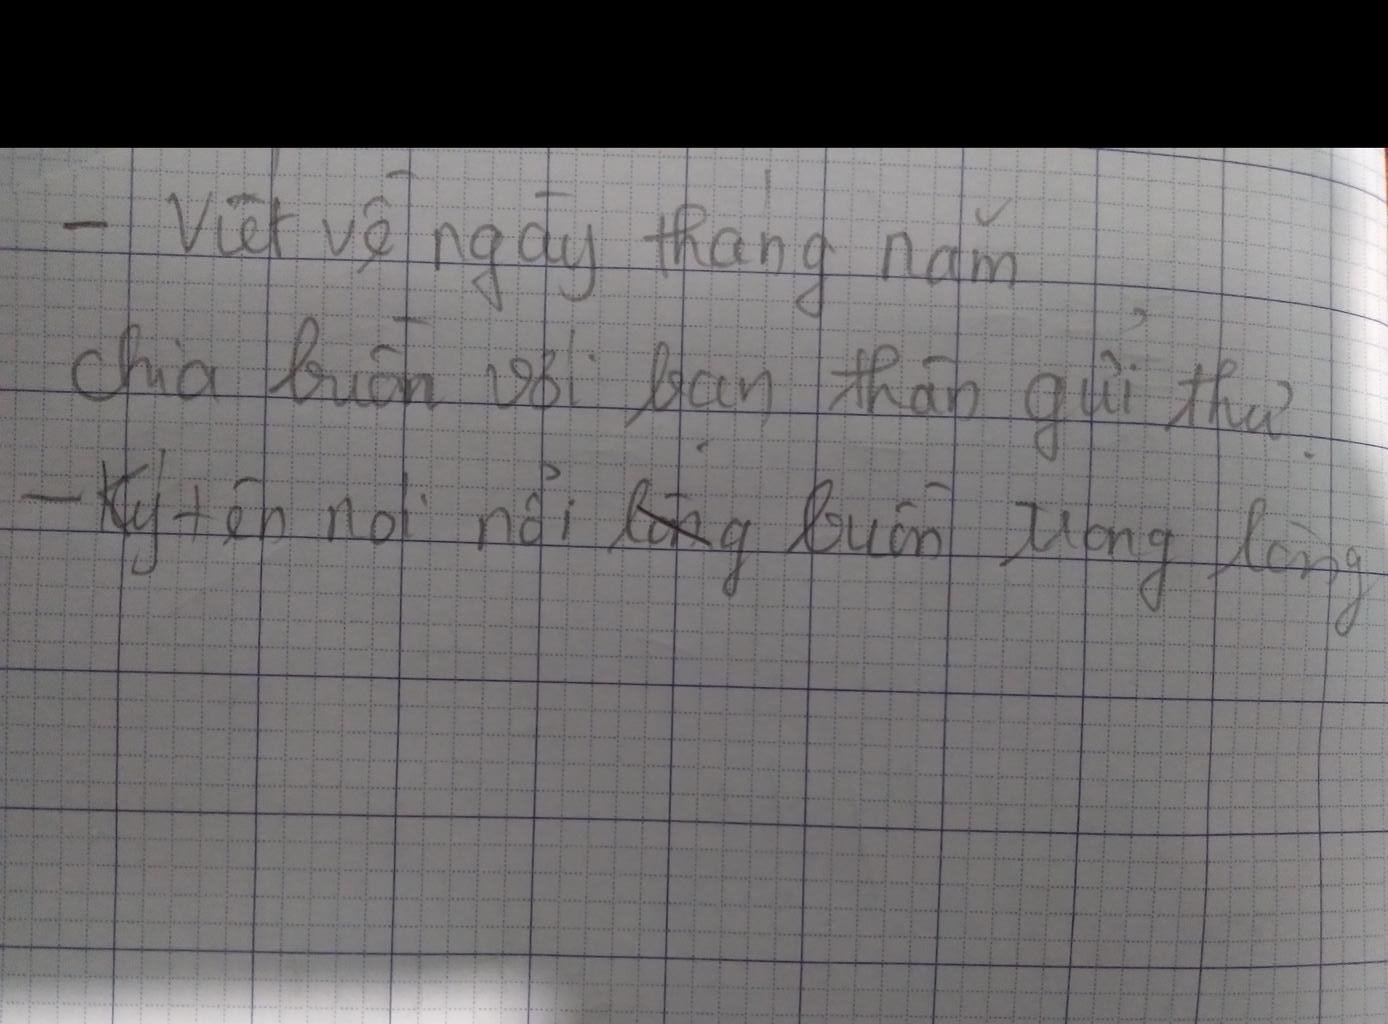 - Viết về ngày tháng năm
chia buồn với bạn thân gửi thư.
- Ký tên nơi nổi lòng buồn trong lòng